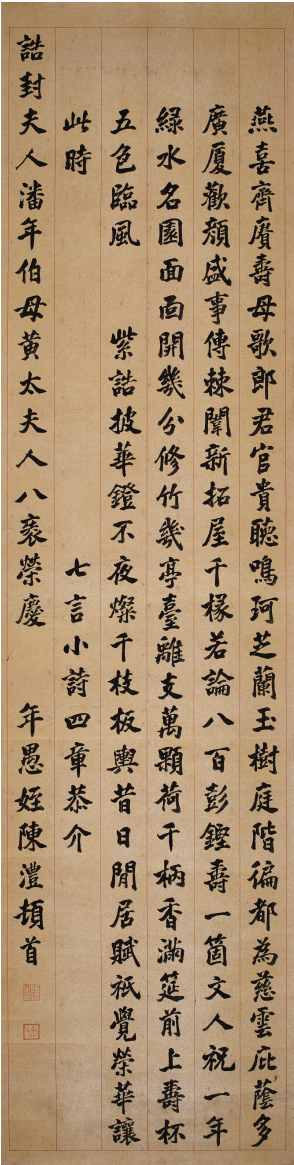 燕喜齊賡壽母歌郎君官貴聽鳴珂芝蘭玉樹庭階徧都為慈雲庇蔭多
廣廈歡顏盛事傳棘闈新拓屋千椽若論八百彭鏗壽一箇文人祝一年
綠水名園面面開幾分修竹幾亭臺離支萬顆荷千柄香滿筵前上壽杯
五色臨風紫誥披華鐙不夜燦千枝板輿昔日閒居賦祇覺榮華讓
此時七言小詩四章恭介
誥封夫人潘年伯母黃太夫人八袠榮慶年愚姪陳澧頓首